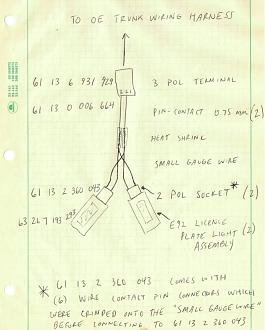 TO OE TRUNK WIRING HARNESS
61 13 6 931 929
3 POL TERMINAL
321
61 13 0 006 664
PIN-CONTACT 0.75 mm (2)
HEAT SHRINK
SMALL GAUGE WIRE
61 13 2 360 043
2 POL SOCKET * (2)
63 26 7 193 293
E92 LICENCE PLATE LIGHT (2)
ASSEMBLY
* 61 13 2 360 043 COMES WITH
(6) WIRE CONTACT PIN CONNECORS WHICH
WERE CRIMPED ONTO THE "SMALL GAUGE WIRE"
BEFORE CONNECTING TO 61 13 2 360 043